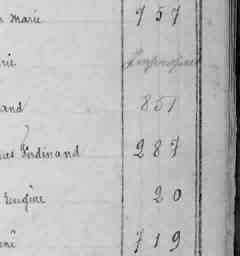 Marie 757
rie
and 851
ues Ferdinand 287
Eugène 20
né 719